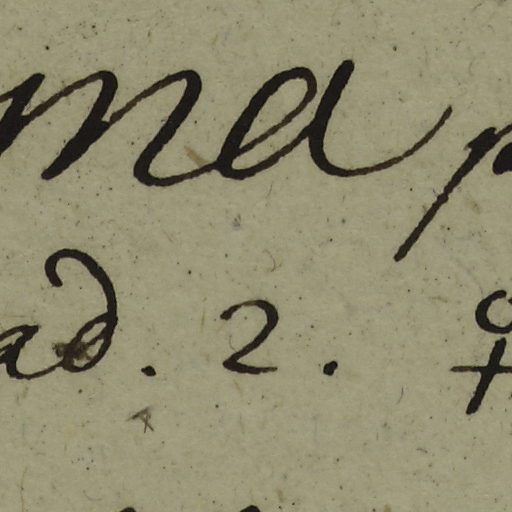 ma p
ad. 2. ♀